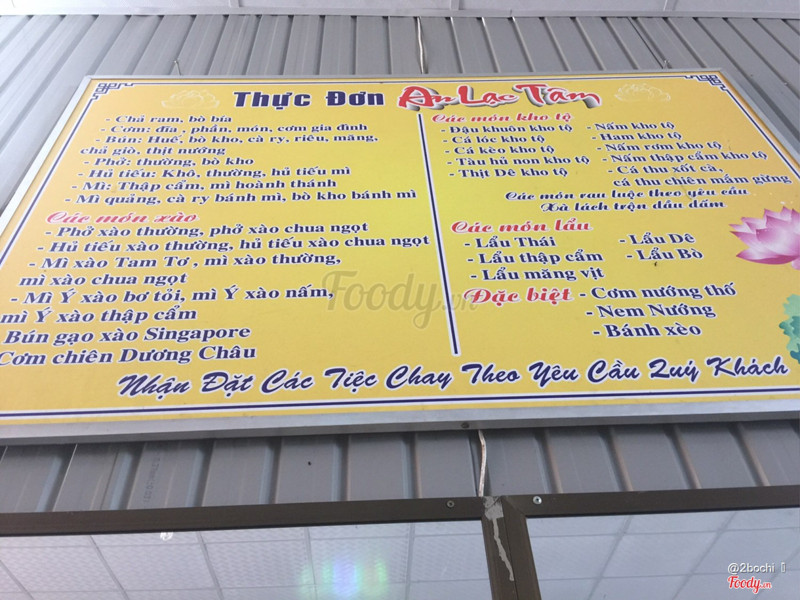 Thực Đơn An Lạc Tâm
- Chả ram, bò bía
- Cơm: đĩa , phần, món, cơm gia đình
- Bún: Huế, bò kho, cà ry, riêu, măng,
chả giò, thịt nướng
- Phở: thường, bò kho
- Hủ tiếu: Khô, thường, hủ tiếu mì
- Mì: Thập cẩm, mì hoành thánh
- Mì quảng, cà ry bánh mì, bò kho bánh mì
Các món xào
- Phở xào thường, phở xào chua ngọt
- Hủ tiếu xào thường, hủ tiếu xào chua ngọt
- Mì xào Tam Tơ , mì xào thường,
mì xào chua ngọt
- Mì Ý xào bơ tỏi, mì Ý xào nấm,
mì Ý xào thập cẩm
Bún gạo xào Singapore
Cơm chiên Dương Châu
Các món kho tộ
- Đậu khuôn kho tộ
- Cá lóc kho tộ
- Cá kèo kho tộ
- Tàu hủ non kho tộ
- Thịt Dê kho tộ
- Nấm kho tộ
- Ham kho tộ
- Nấm rơm kho tộ
- Nấm thập cẩm kho tộ
- Cá thu xốt cà,
cá thu chiên mắm gừng
Các món rau luộc theo yêu cầu
Xà lách trộn dầu dấm
Các món lẩu
- Lẩu Thái
- Lẩu thập cẩm
- Lẩu măng vịt
- Lẩu Dê
- Lẩu Bò
Đặc biệt - Cơm nướng thố
- Nem Nướng
- Bánh xèo
Nhận Đặt Các Tiệc Chay Theo Yêu Cầu Quý Khách
Foody.vn
@2bochi
Foody.vn